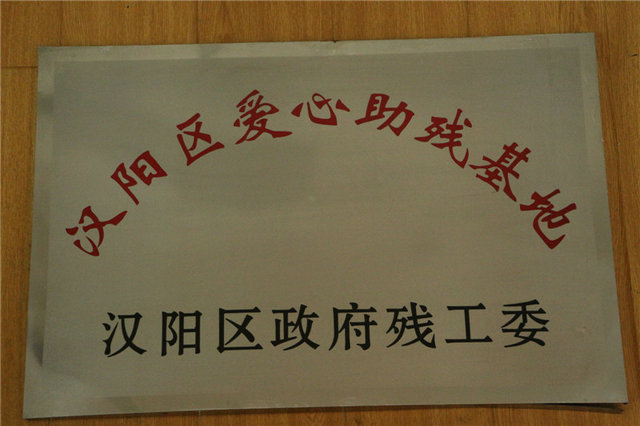 汉阳区爱心助残基地
汉阳区政府残工委